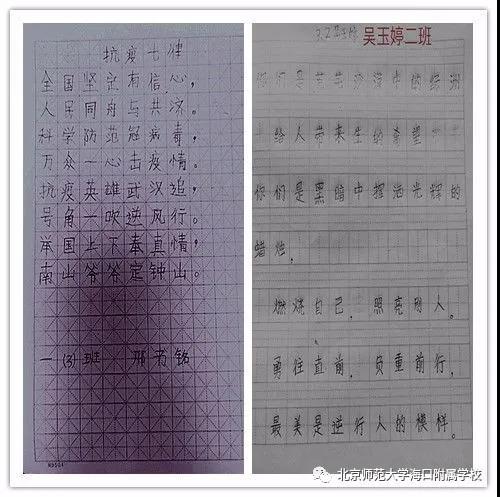 抗疫七律
全国坚定有信心，
人民同舟与共济。
科学防范冠病毒，
万众一心击疫情。
抗疫英雄武汉追，
号角一吹逆风行。
举国上下奉真情，
南山爷爷定钟山。
一(3)班 邢书铭
吴玉婷二班
你们是茫茫沙漠中的绿洲
给人带来生的希望
你们是黑暗中挥洒光辉的
蜡烛，
燃烧自己，照亮别人。
勇往直前，负重前行，
最美是逆行人的模样。
北京师范大学海口附属学校